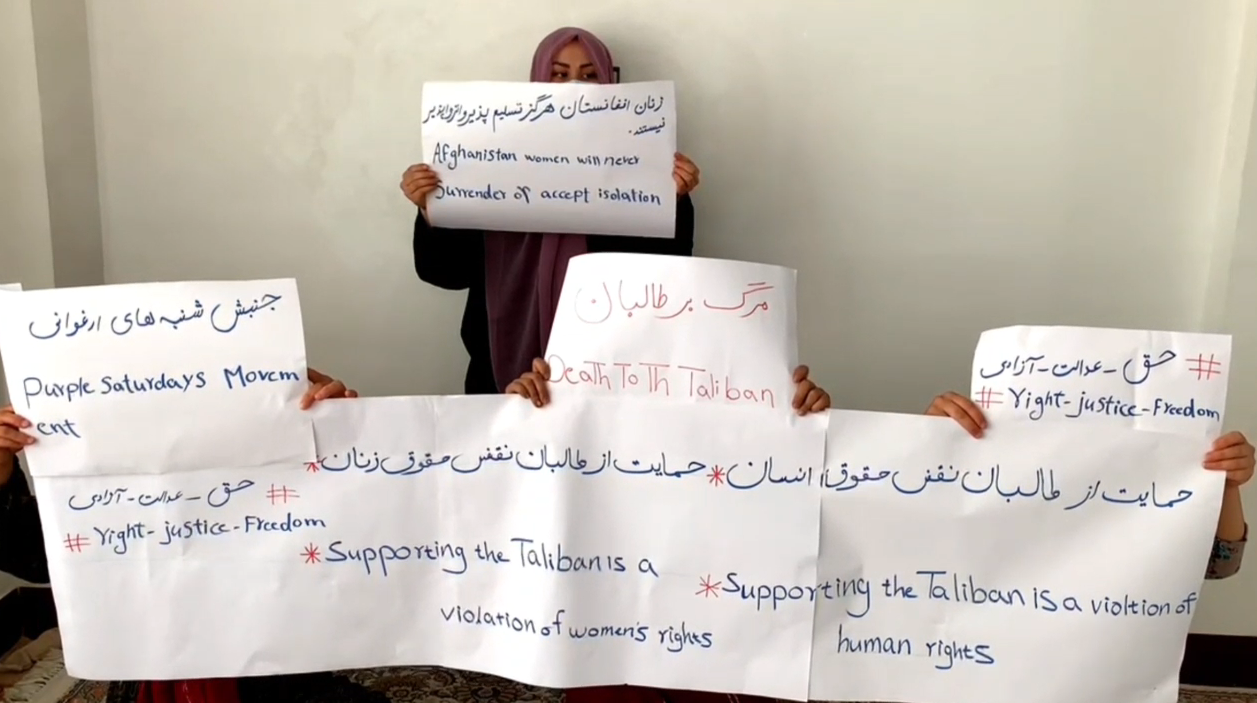 زنان افغانستان هرگز تسلیم پذیر و انزواپذیر
نیستند.
Afghanistan women will never
Surrender or accept isolation
جنبش شنبه های ارغوانی
Purple Saturdays Movem
ent
مرگ بر طالبان
Death To Th Taliban
# حق - عدالت - آزادی
# Yight-justice-Freedom
# حق - عدالت - آزادی
# Yight-justice-Freedom
*حمایت از طالبان نقض حقوق زنان
*Supporting the Taliban is a
violation of women's rights
*حمایت از طالبان نقض حقوق انسان
*Supporting the Taliban is a violtion of
human rights